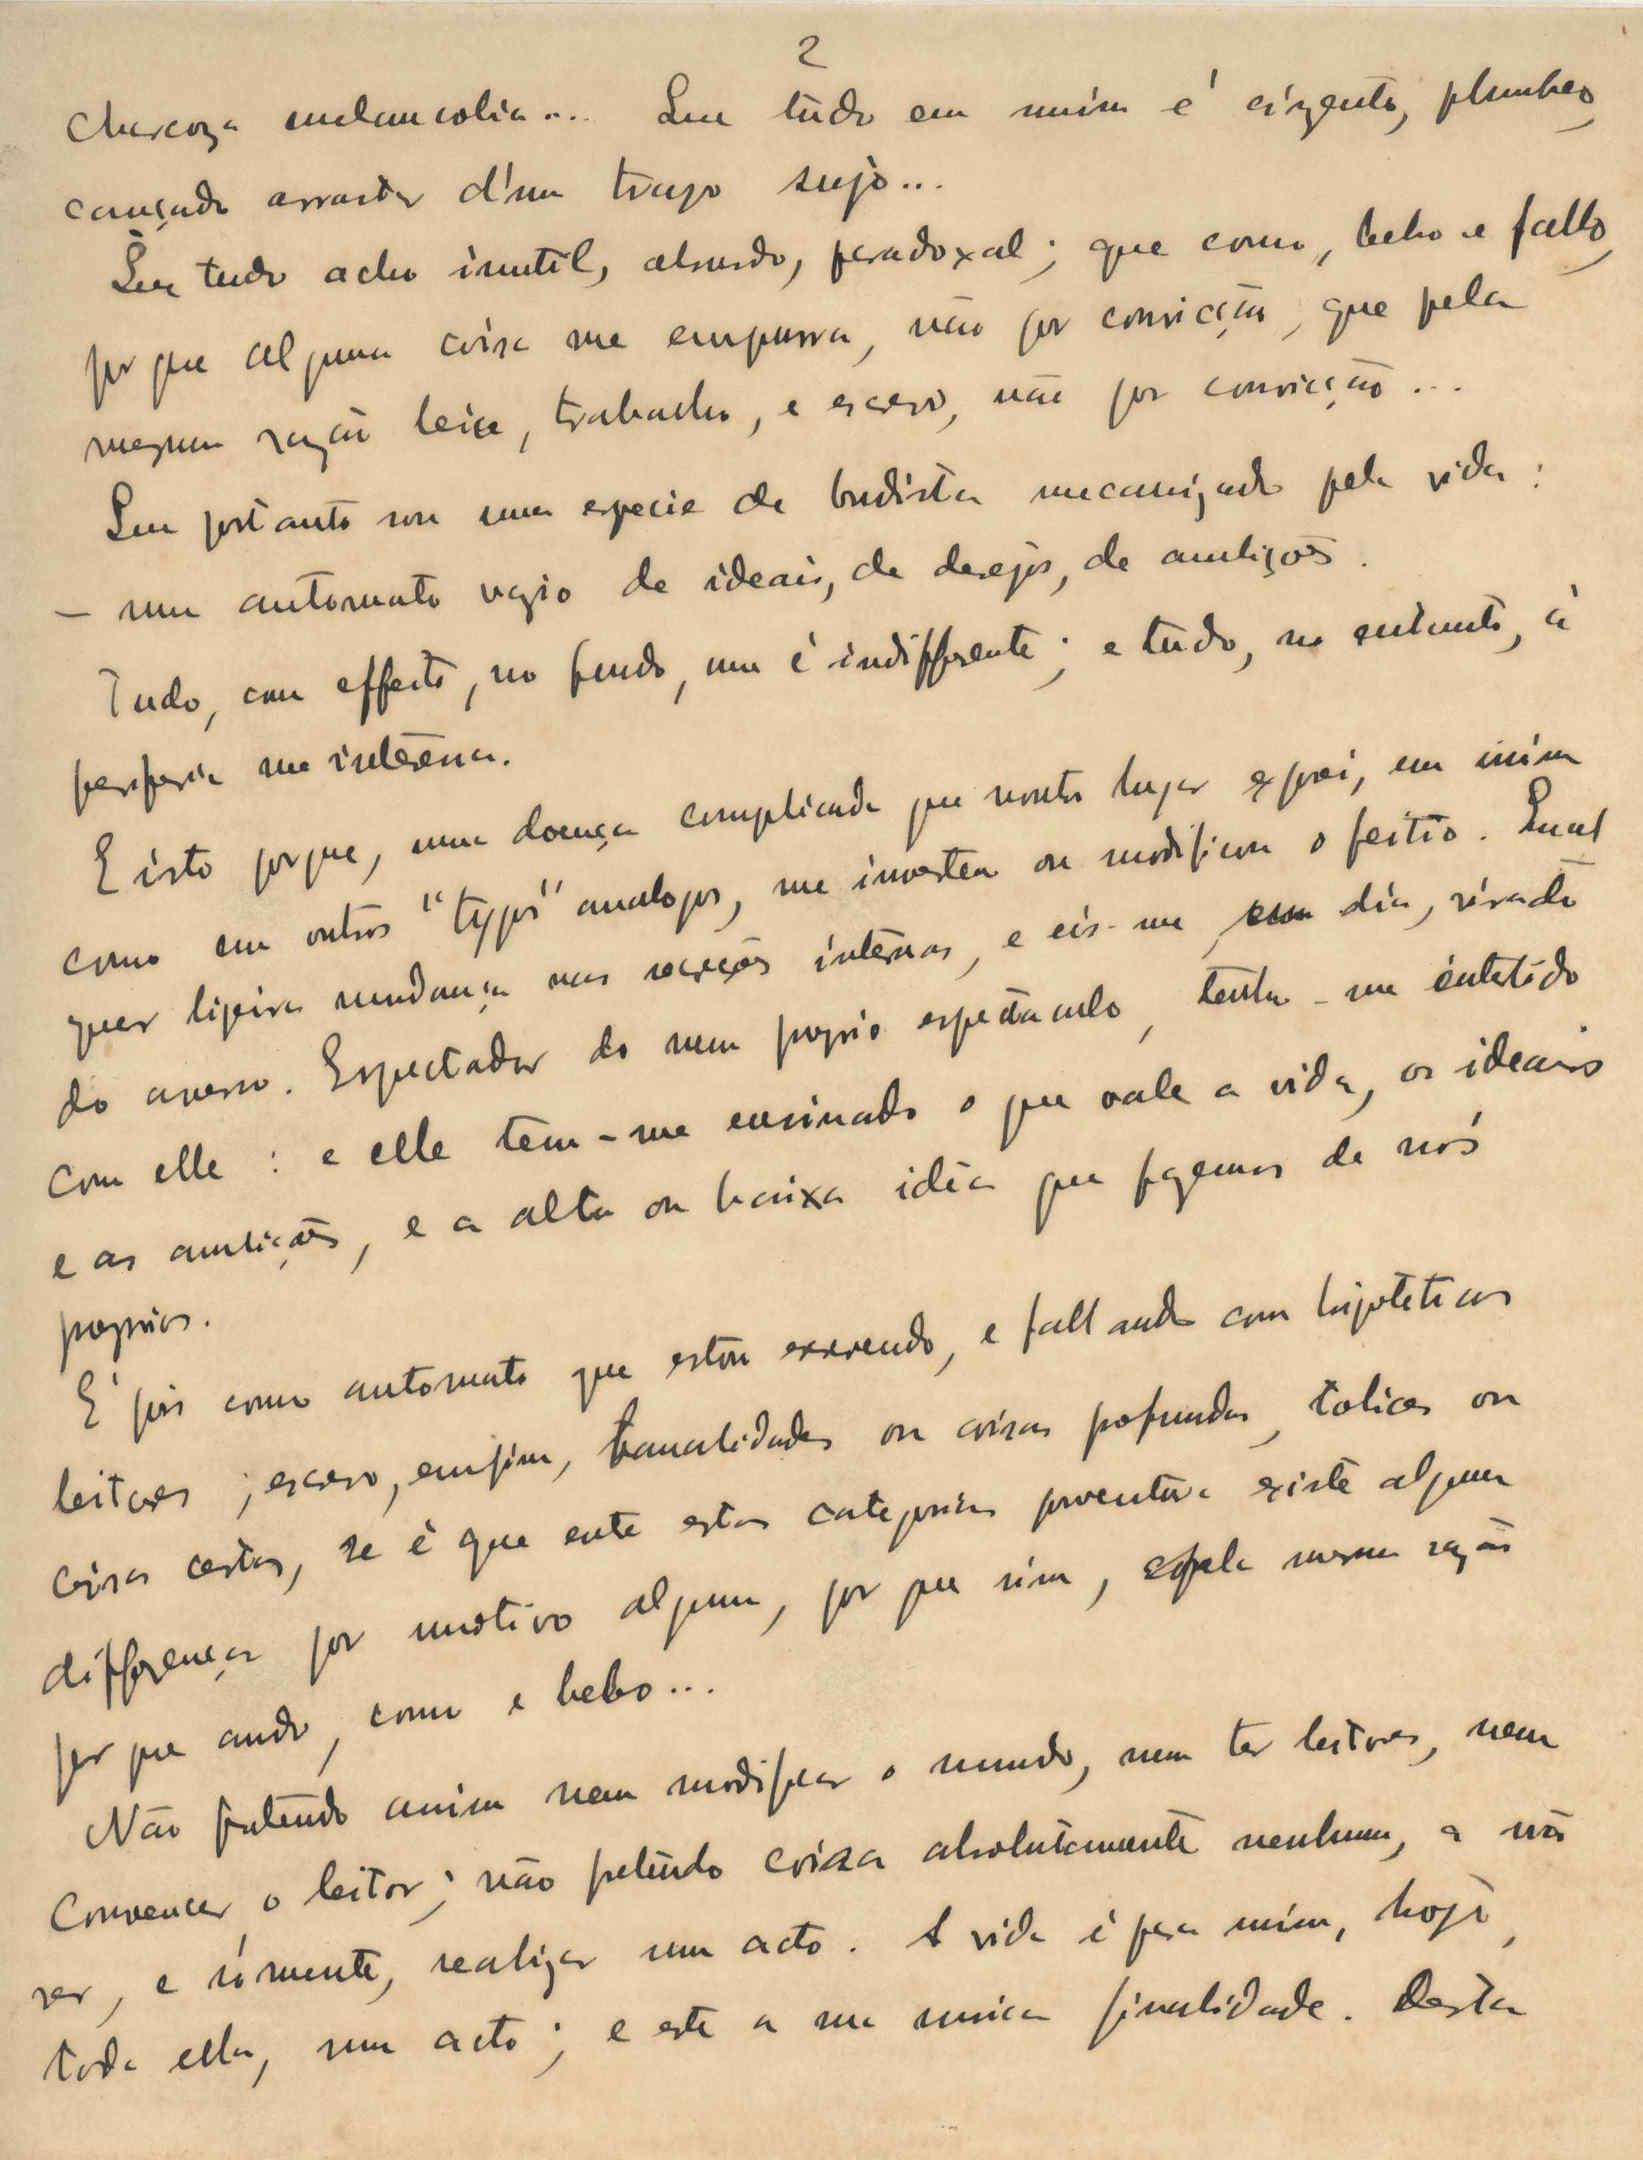 2
charcoza melancolia... Que tudo em mim é cinzento, plumbeo,
cançado arrastar d'um trapo sujo...
Que tudo acho inutil, absurdo, paradoxal; que como, bebo e fallo,
por que alguma coisa me empurra, não por convicção, que pela
mesma razão leio, trabalho, e escrevo, não por convicção...
Que portanto sou uma especie de budista mecanizado pela vida:
— um automato vazio de ideais, de desejos, de ambições.
Tudo, com effeito, no fundo, me é indifferente; e tudo, no entanto, á
periferia me interessa.
E isto porque, uma doença complicada que noutro lugar expuz, em mim
como em outros "typos" analogos, me inverteu ou modificou o feitio. Qual
quer ligeira mudança nas secreções internas, e eis-me, um dia, virado
do avesso. Espectador do meu proprio espectaculo, tenho-me entretido
com elle: e elle tem-me ensinado o que vale a vida, os ideais
e as ambições, e a alta ou baixa idéa que fazemos de nós
proprios.
E' pois como automato que estou escrevendo, e fallando com hipoteticos
leitores; escrevo, emfim, banalidades ou coisas profundas, tolices ou
coisas certas, se é que entre estas categorias porventura existe alguma
differença por motivo algum, por que sim, e pela mesma razão
por que ando, como e bebo...
Não pretendo assim nem modificar o mundo, nem ter leitores, nem
convencer o leitor; não pretendo coisa absolutamente nenhuma, a não
ser, e sómente, realizar um acto. A vida é para mim, hoje,
toda ella, um acto; e este a sua unica finalidade. Desta